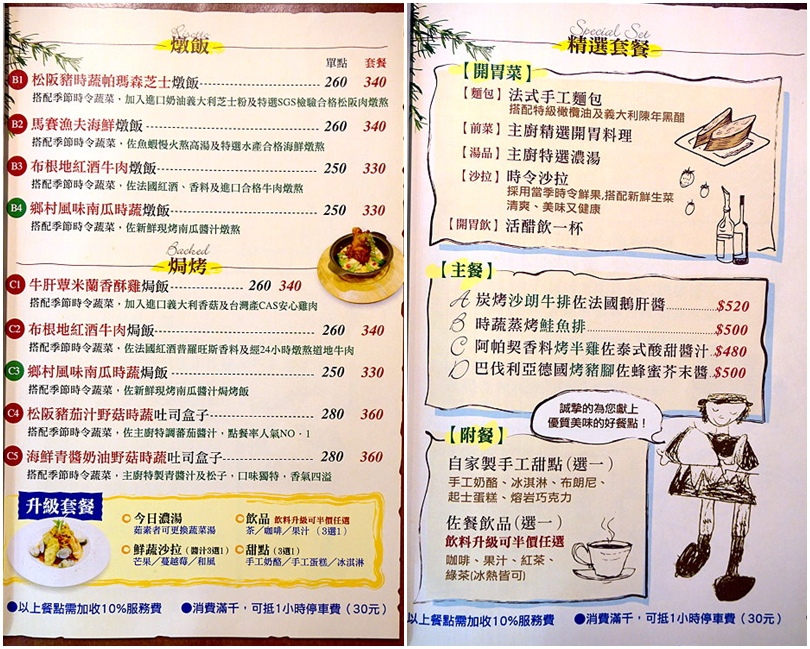 Risotto
燉飯
單點 套餐
B1 松阪豬時蔬帕瑪森芝士燉飯 260 340
搭配季節時令蔬菜，加入進口奶油義大利芝士粉及特選SGS檢驗合格松阪肉燉熬
B2 馬賽漁夫海鮮燉飯 260 340
搭配季節時令蔬菜，佐魚蝦慢火熬高湯及特選水產合格海鮮燉熬
B3 布根地紅酒牛肉燉飯 250 330
搭配季節時令蔬菜，佐法國紅酒、香料及進口合格牛肉燉熬
B4 鄉村風味南瓜時蔬燉飯 250 330
搭配季節時令蔬菜，佐新鮮現烤南瓜醬汁燉熬
Backed
焗烤
C1 牛肝蕈米蘭香酥雞焗飯 260 340
搭配季節時令蔬菜，加入進口義大利香菇及台灣產CAS安心雞肉
C2 布根地紅酒牛肉焗飯 260 340
搭配季節時令蔬菜，佐法國紅酒普羅旺斯香料及經24小時燉熬道地牛肉
C3 鄉村風味南瓜時蔬焗飯 250 330
搭配季節時令蔬菜，佐新鮮現烤南瓜醬汁焗烤飯
C4 松阪豬茄汁野菇時蔬吐司盒子 280 360
搭配季節時令蔬菜，佐主廚特調蕃茄醬汁，點餐率人氣NO．1
C5 海鮮青醬奶油野菇時蔬吐司盒子 280 360
搭配季節時令蔬菜，主廚特製青醬汁及松子，口味獨特，香氣四溢
升級套餐
今日濃湯
茹素者可更換蔬菜湯
飲品 飲料升級可半價任選
茶／咖啡／果汁（3選1）
鮮蔬沙拉（醬汁3選1）
芒果／蔓越莓／和風
甜點（3選1）
手工奶酪／手工蛋糕／冰淇淋
●以上餐點需加收10%服務費 ●消費滿千，可抵1小時停車費（30元）
Special Set
精選套餐
【開胃菜】
【麵包】法式手工麵包
搭配特級橄欖油及義大利陳年黑醋
【前菜】主廚精選開胃料理
【湯品】主廚特選濃湯
【沙拉】時令沙拉
採用當季時令鮮果,搭配新鮮生菜
清爽、美味又健康
【開胃飲】活醋飲一杯
【主餐】
A 炭烤沙朗牛排佐法國鵝肝醬 $520
B 時蔬蒸烤鮭魚排 $500
C 阿帕契香料烤半雞佐泰式酸甜醬汁 $480
D 巴伐利亞德國烤豬腳佐蜂蜜芥末醬 $500
誠摯的為您獻上
優質美味的好餐點！
【附餐】
自家製手工甜點(選一)
手工奶酪、冰淇淋、布朗尼、
起士蛋糕、熔岩巧克力
佐餐飲品(選一)
飲料升級可半價任選
咖啡、果汁、紅茶、
綠茶(冰熱皆可)
以上餐點需加收10%服務費 ●消費滿千，可抵1小時停車費（30元）